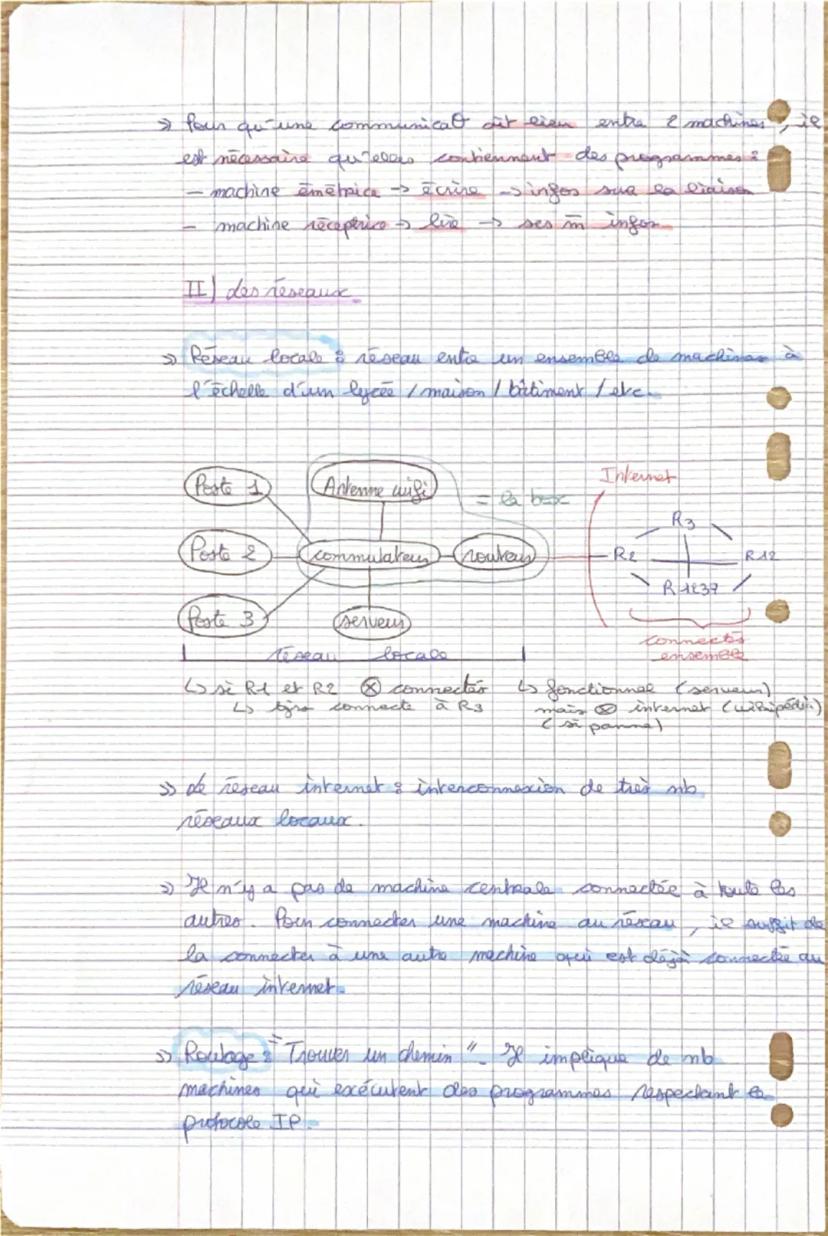 => Pour qu'une communicat° ait lieu entre 2 machines, il
est nécessaire qu'elles contiennent des programmes :
- machine émétrice -> écrire -> infos sur la liaison
- machine réceptrice -> lire -> ses m̄ infos
II) des réseaux.
=> Réseau locale : réseau entre un ensemble de machines à
l'échelle d'un lycée / maison / bâtiment / etc.
Internet
Poste 1 Antenne wifi = la box
R3
Poste 2 commutateur routeur R2 R12
R1237
Poste 3 serveur
connectés
ensemble
réseau locale
↳ si R1 et R2 ⊗ connectés ↳ fonctionnel (serveur)
↳ tjrs connecté à R3 mais ⊗ internet (wikipédia)
(si panne)
=> Le réseau internet : interconnexion de très nb
réseaux locaux.
=> Il n'y a pas de machine centrale connectée à toute les
autres. Pour connecter une machine au réseau, il suffit de
la connecter à une autre machine qui est déjà connectée au
réseau internet.
=> Routage : "Trouver un chemin". Il implique de nb
machines qui exécutent des programmes respectant le
protocole IP.